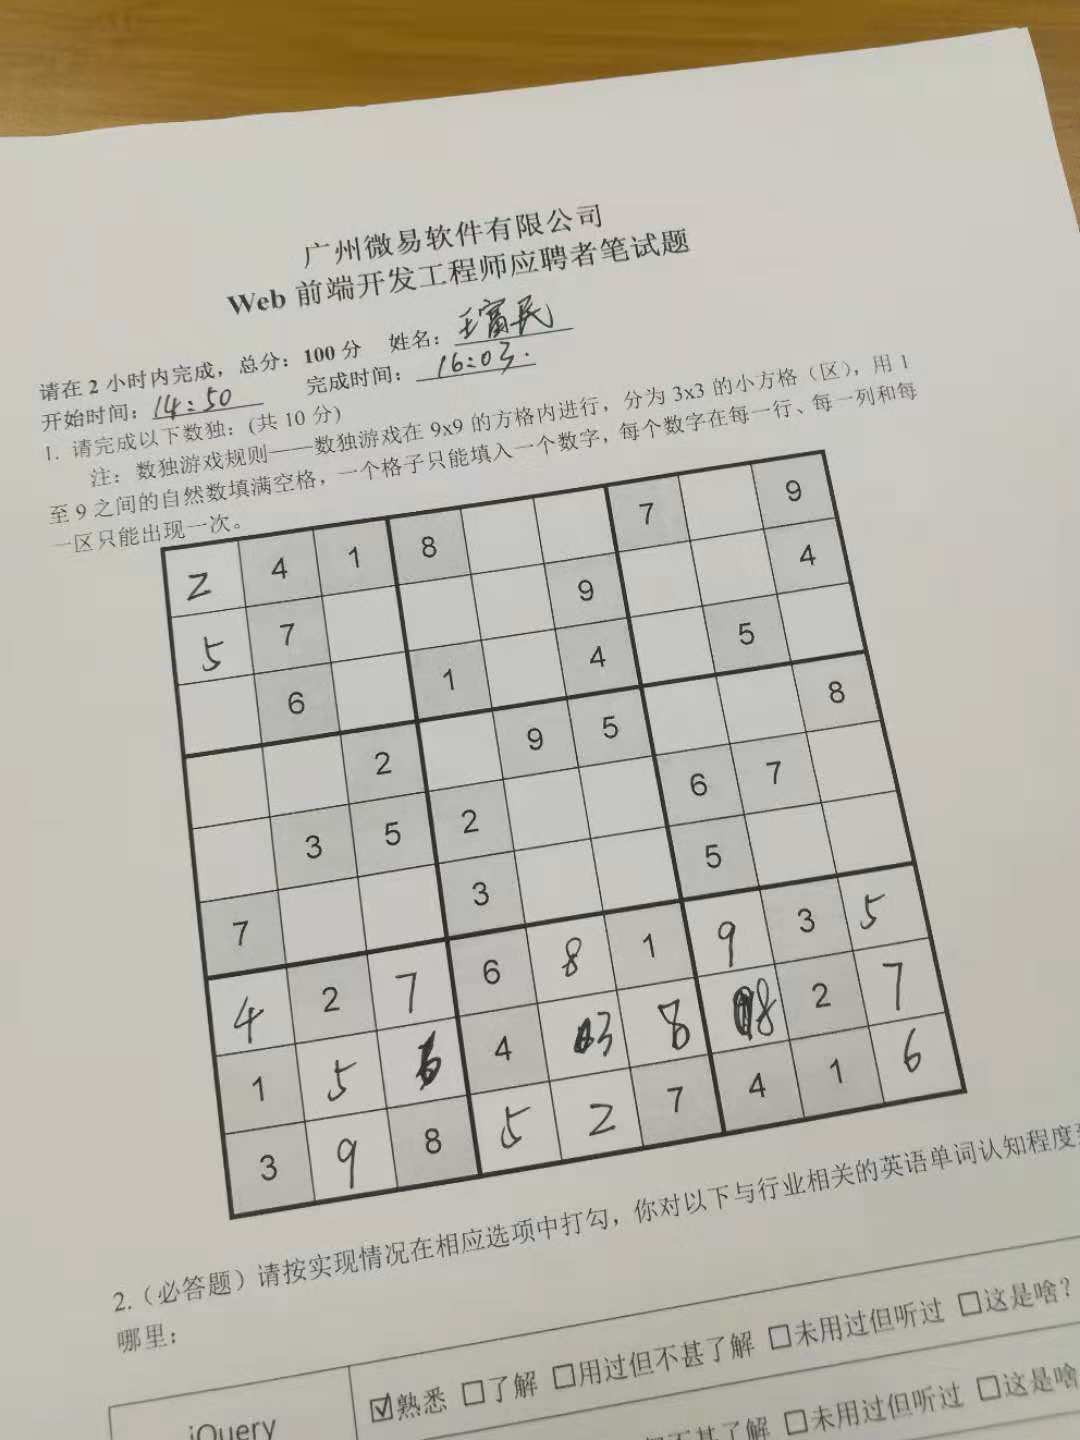 广州微易软件有限公司
Web 前端开发工程师应聘者笔试题
请在 2 小时内完成，总分：100 分 姓名：王富民
开始时间：14:50 完成时间：16:03.
1. 请完成以下数独：(共 10 分)
注：数独游戏规则——数独游戏在 9x9 的方格内进行，分为 3x3 的小方格（区），用 1
至 9 之间的自然数填满空格，一个格子只能填入一个数字，每个数字在每一行、每一列和每
一区只能出现一次。
2 4 1 8 7 9
5 7 9 4
6 1 4 5
2 9 5 8
3 5 2 6 7
7 3 5
4 2 7 6 8 1 9 3 5
1 5 6 4 3 8 8 2 7
3 9 8 5 2 7 4 1 6
2.（必答题）请按实现情况在相应选项中打勾，你对以下与行业相关的英语单词认知程度
哪里：
jQuery
☑熟悉 □了解 □用过但不甚了解 □未用过但听过 □这是啥？
不甚了解 □未用过但听过 □这是啥